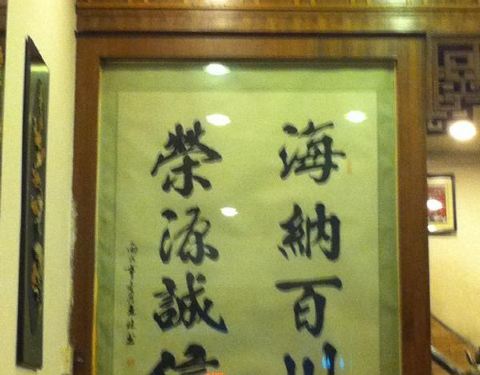 海納百川
榮源誠信